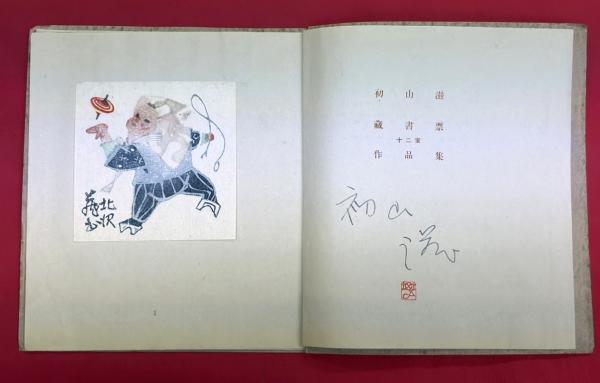 北沢
蔵書
初山滋
藏書票
十二家
作品集
初山
滋